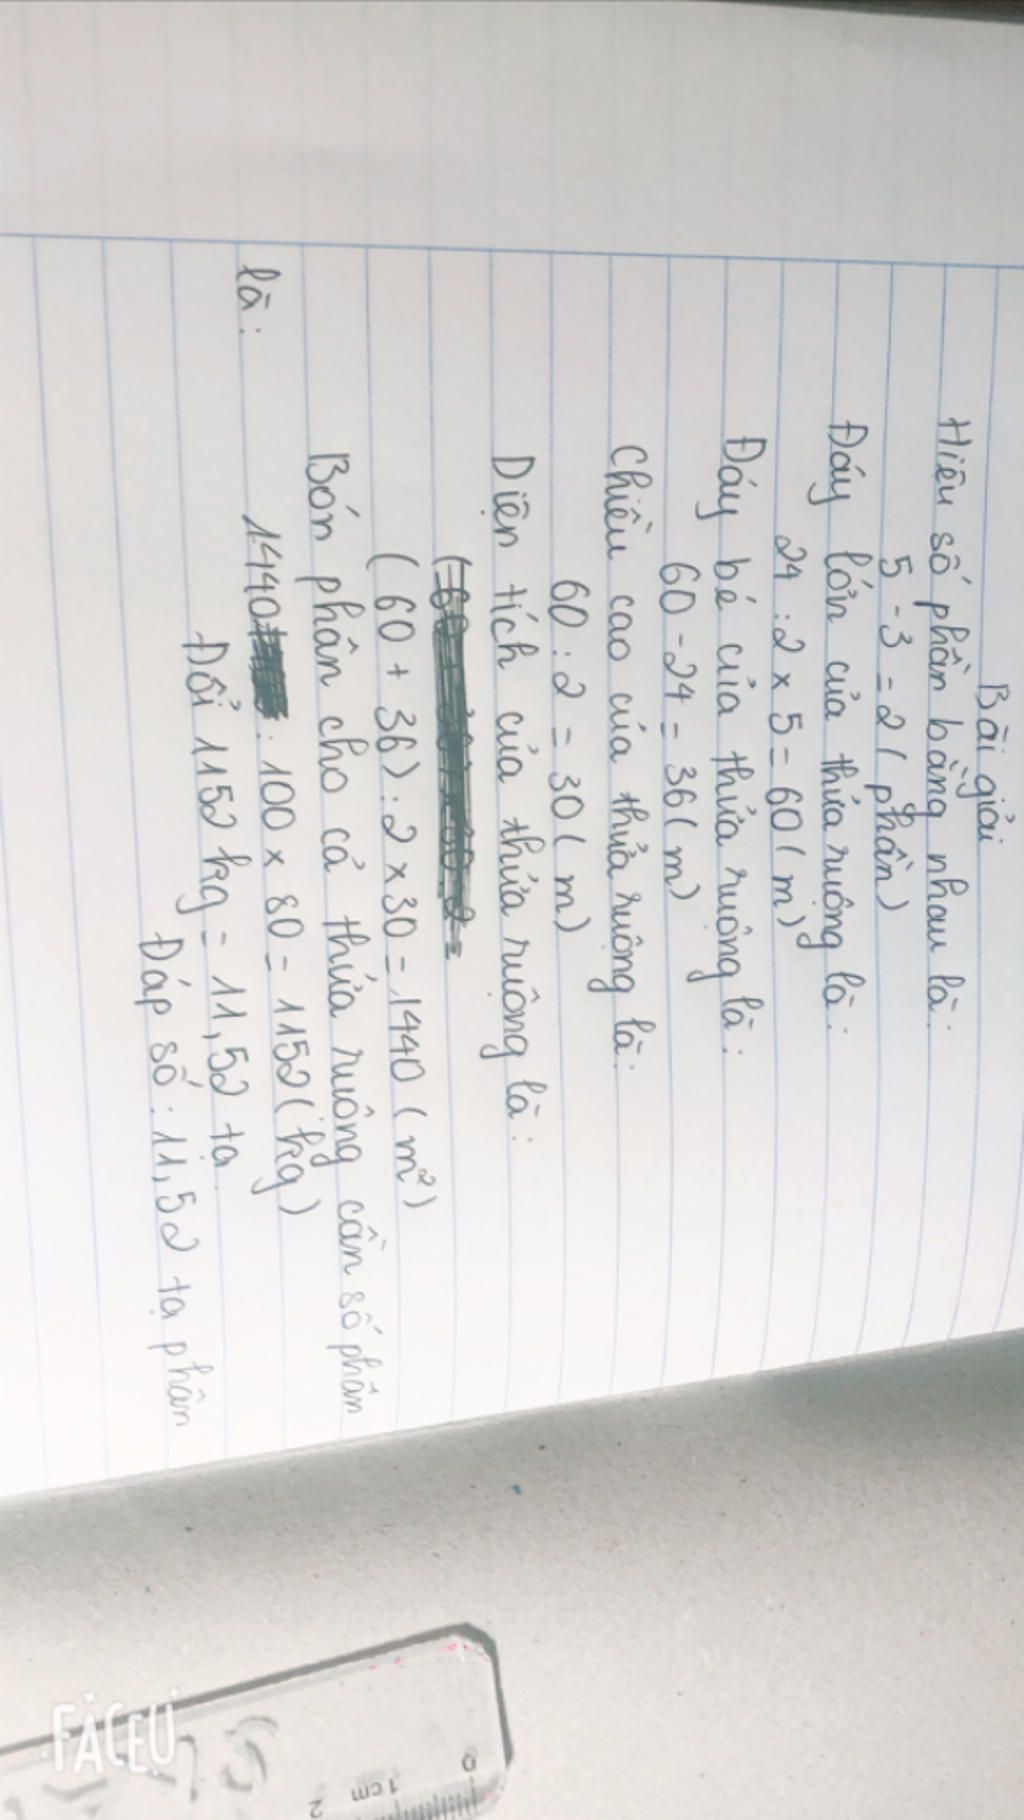 Bài giải
Hiệu số phần bằng nhau là:
5 - 3 = 2 (phần)
Đáy lớn của thửa ruộng là:
24 : 2 x 5 = 60 (m)
Đáy bé của thửa ruộng là:
60 - 24 = 36 (m)
Chiều cao của thửa ruộng là:
60 : 2 = 30 (m)
Diện tích của thửa ruộng là:
(60 + 36) : 2 x 30 = 1440 (m²)
Bón phân cho cả thửa ruộng cần số phân
là:
1440 : 100 x 80 = 1152 (kg)
Đổi 1152 kg = 11,52 tạ
Đáp số : 11,52 tạ phân
0 1cm 2
FACEU